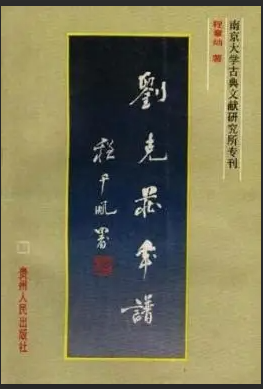 南京大学古典文献研究所专刊
程章灿 著
劉克莊年譜
程千帆署
贵州人民出版社